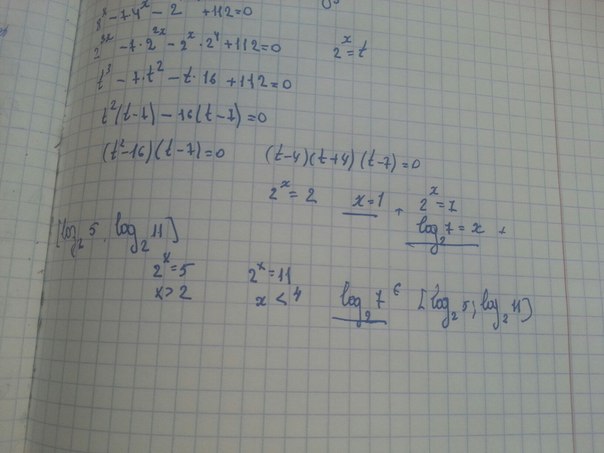 8^x - 7·4^x - 2 +112=0
2^{3x} - 7·2^{2x} - 2^x·2^4 +112=0 2^x=t
t^3 - 7·t^2 - t·16 +112=0
t^2(t-7) - 16(t-7)=0
(t^2-16)(t-7)=0 (t-4)(t+4)(t-7)=0
2^x=2 x=1 + 2^x=7
log_2 7=x +
[log_2 5, log_2 11]
2^x=5 2^x=11
x>2 x<4 log_2 7 ∈ [log_2 5; log_2 11]